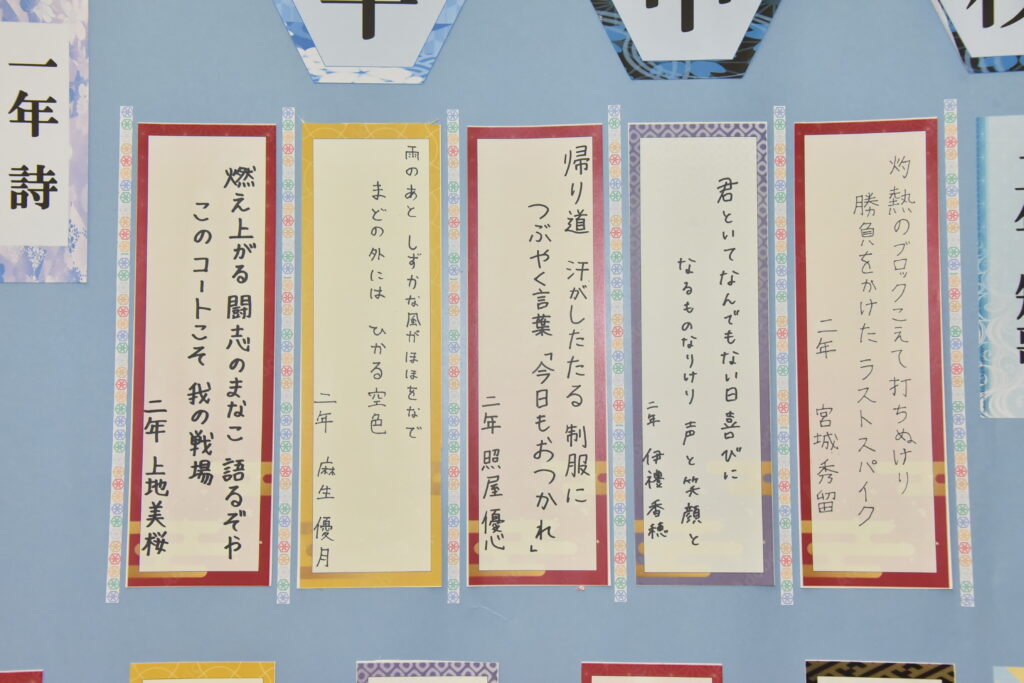 灼熱のブロックこえて打ちぬけり
勝負をかけた ラストスパイク
二年 宮城秀留
君といてなんでもない日喜びに
なるものなりけり 声と笑顔と
二年 伊禮香穂
帰り道 汗がしたたる 制服に
つぶやく言葉「今日もおつかれ」
二年 照屋優心
雨のあと しずかな風がほほをなで
まどの外には ひかる空色
二年 麻生優月
燃え上がる 闘志のまなこ 語るぞや
このコートこそ 我の戦場
二年 上地美桜
一年 詩